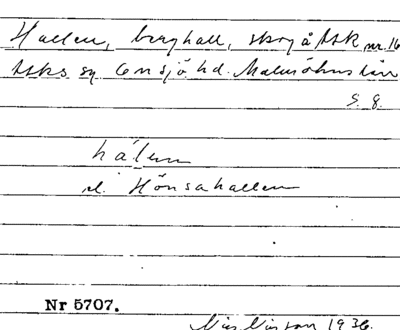 Hallen, berghall, skog å Ask nr. 16
Asks sn Onsjö hd. Malmöhus län
S. 8.
hálen
el. Hönsahallen
Nr 5707.
Nils Nilsson 1936.